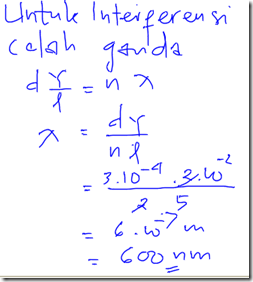 Untuk Interferensi
celah ganda
d y/l = n λ
λ = dy/nl
= 3.10⁻⁴ . 2.10⁻²/2 5
= 6.10⁻⁷ m
= 600 nm